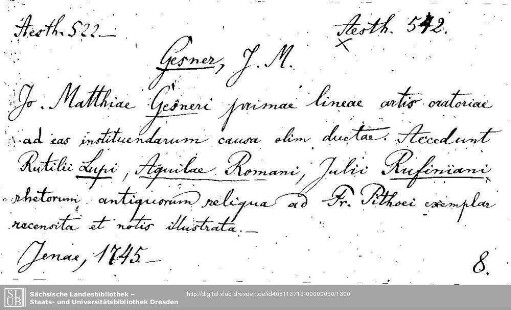 Aesth. 522.—
Aesth. 542.
Gesner, J. M.
Jo. Matthiae Gesneri primae lineae artis oratoriae
ad eas instituendarum causa olim ductae. Accedunt
Rutilii Lupi, Aquilae Romani, Julii Rufiniani
rhetorum antiquorum reliqua ad Fr. Pithoei exemplar
recensita et notis illustrata.—
Jenae, 1745—
8.
SLUB
Sächsische Landesbibliothek –
Staats- und Universitätsbibliothek Dresden